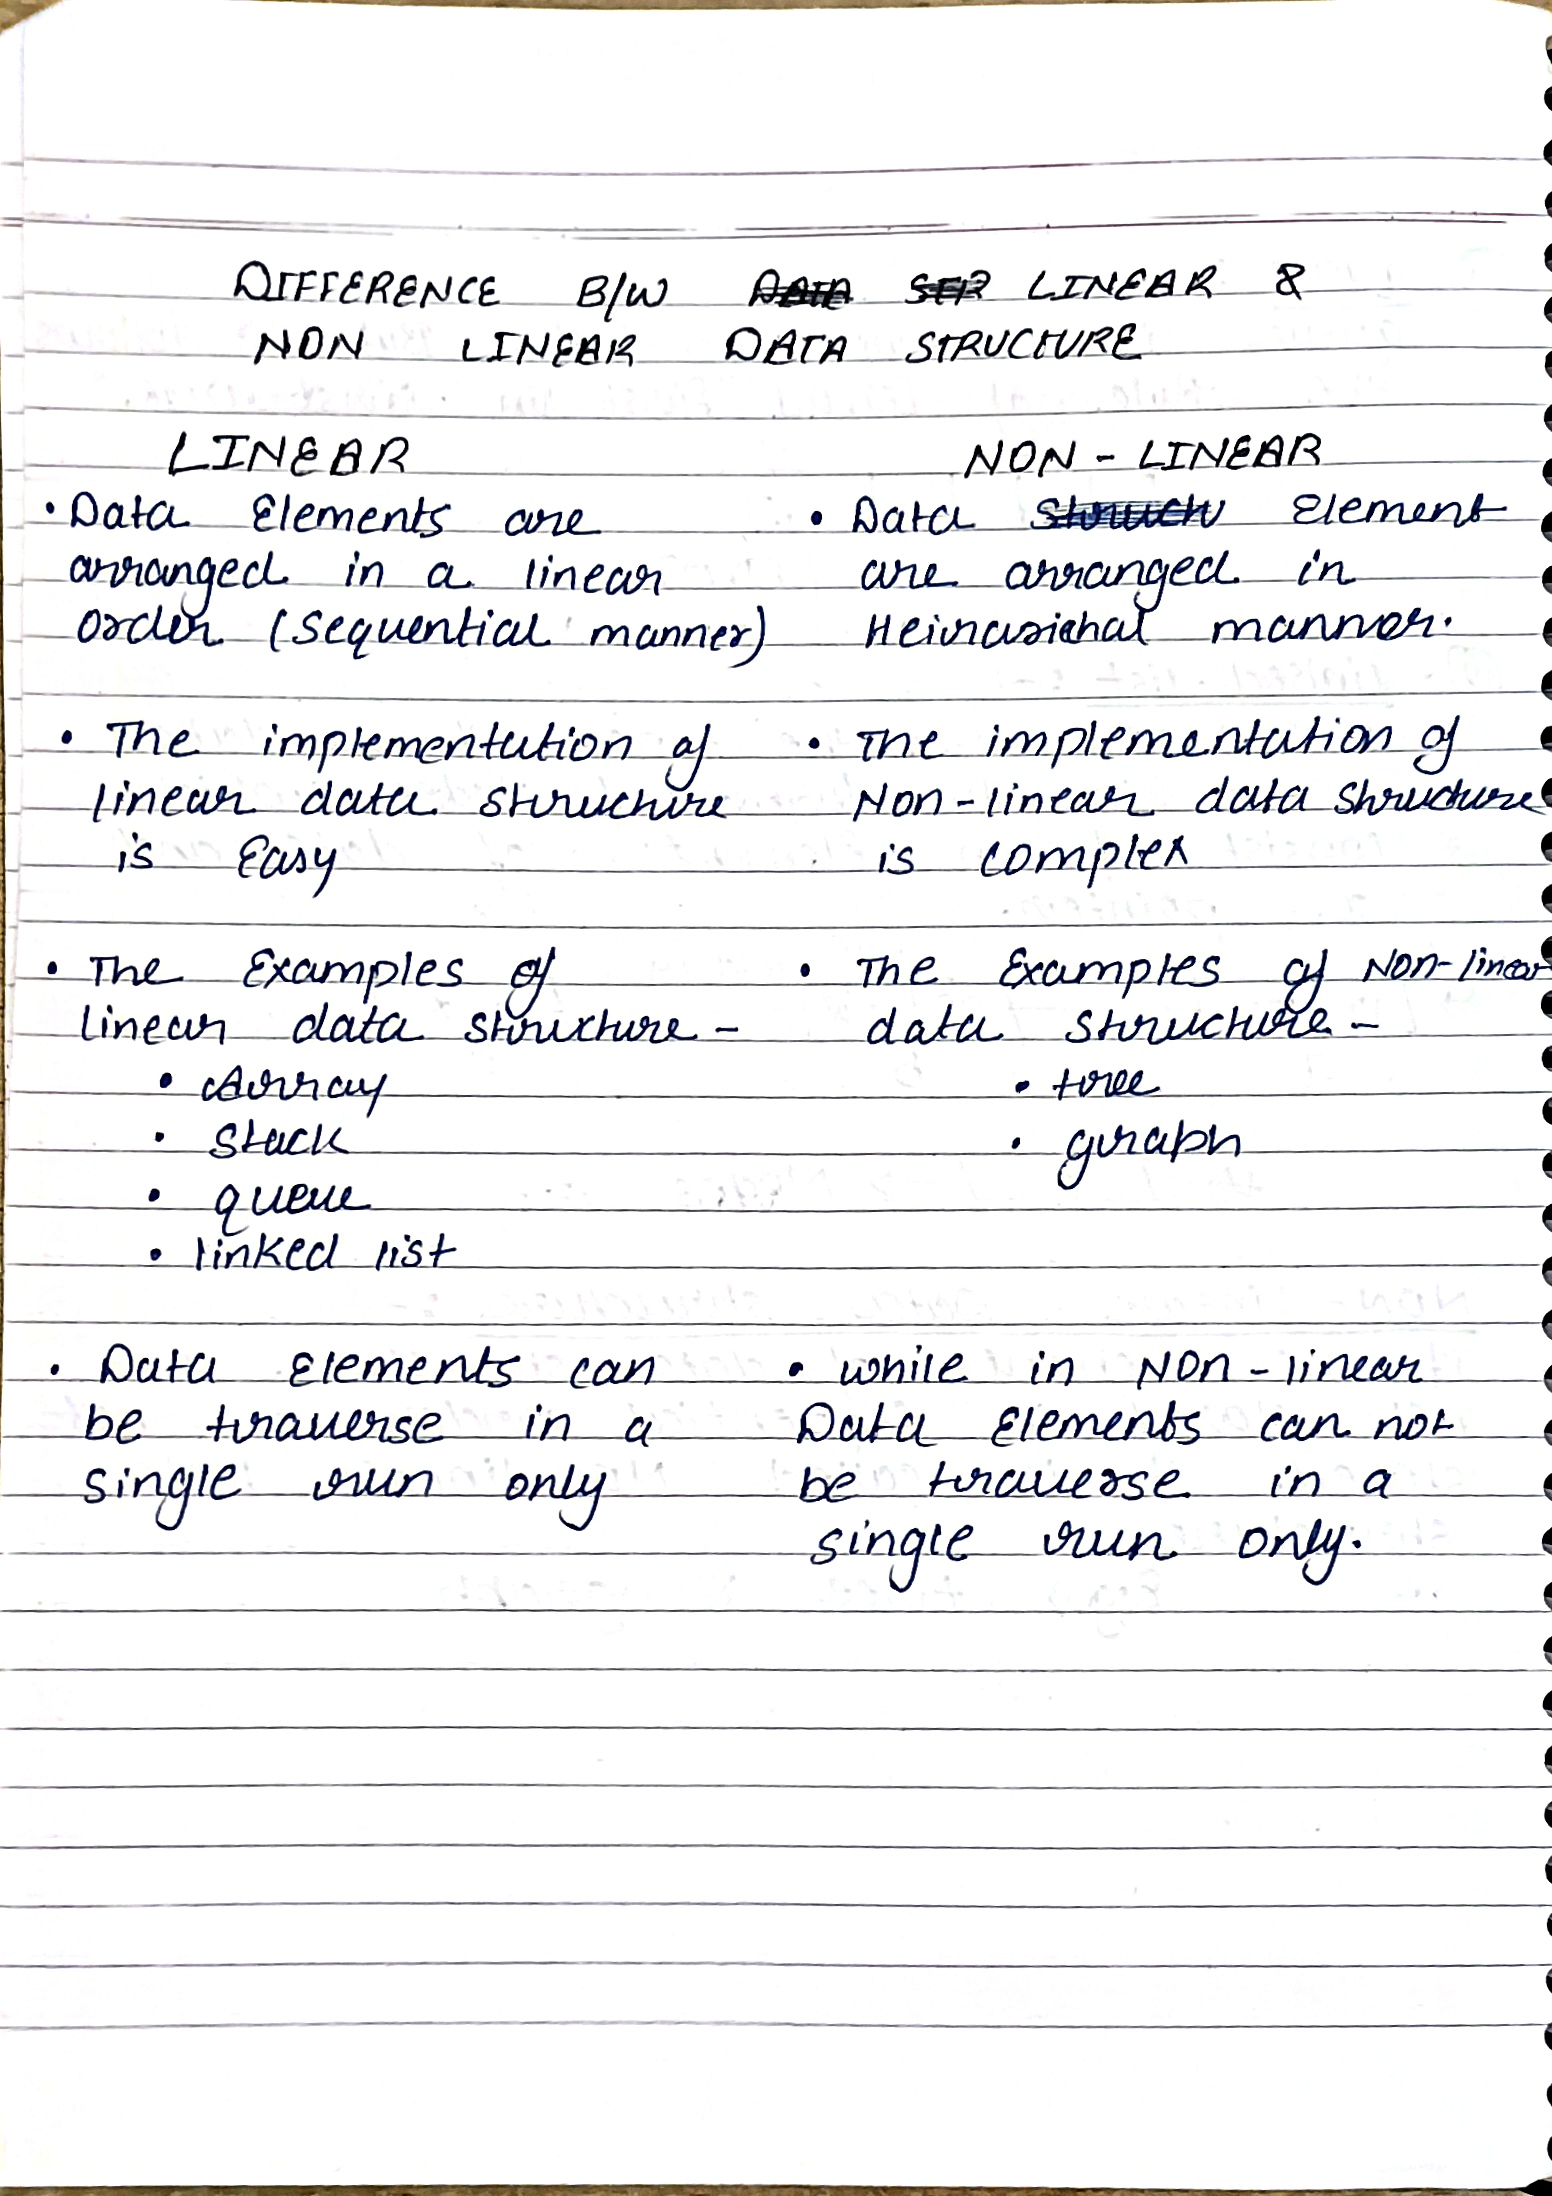 DIFFERENCE B/W LINEAR &
NON LINEAR DATA STRUCTURE
LINEAR
• Data Elements are
arranged in a linear
order (sequential manner)
• The implementation of
linear data structure
is Easy
• The Examples of
linear data structure -
• Array
• Stack
• queue
• linked list
• Data Elements can
be traverse in a
single run only
NON - LINEAR
• Data Element
are arranged in
manner.
• The implementation of
Non-linear data structure
is complex
• The Examples of Non-linear
data structure -
• tree
• graph
• while in NON - linear
Data Elements can not
be traverse in a
single run only.